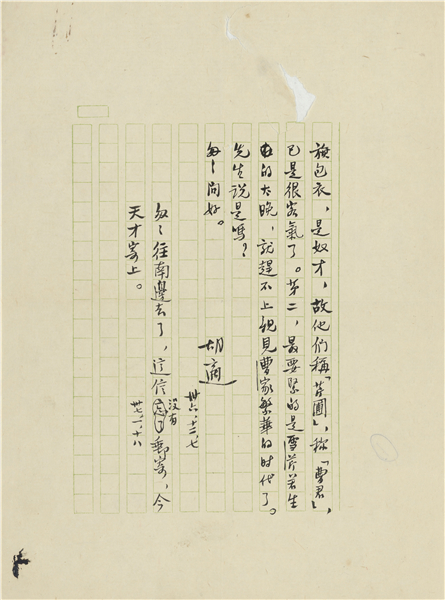 旗包衣，是奴才，故他們稱「芹圃」，稱「曹君」，
已是很客氣了。第二，最要緊的是雪芹若生
的太晚，就趕不上親見曹家繁華的时代了。
先生說是嗎？
匆匆問好。
胡適
卅六，十二，七
匆匆往南邊去了，這信沒有郵寄，今
天才寄上。
卅七，一，十八